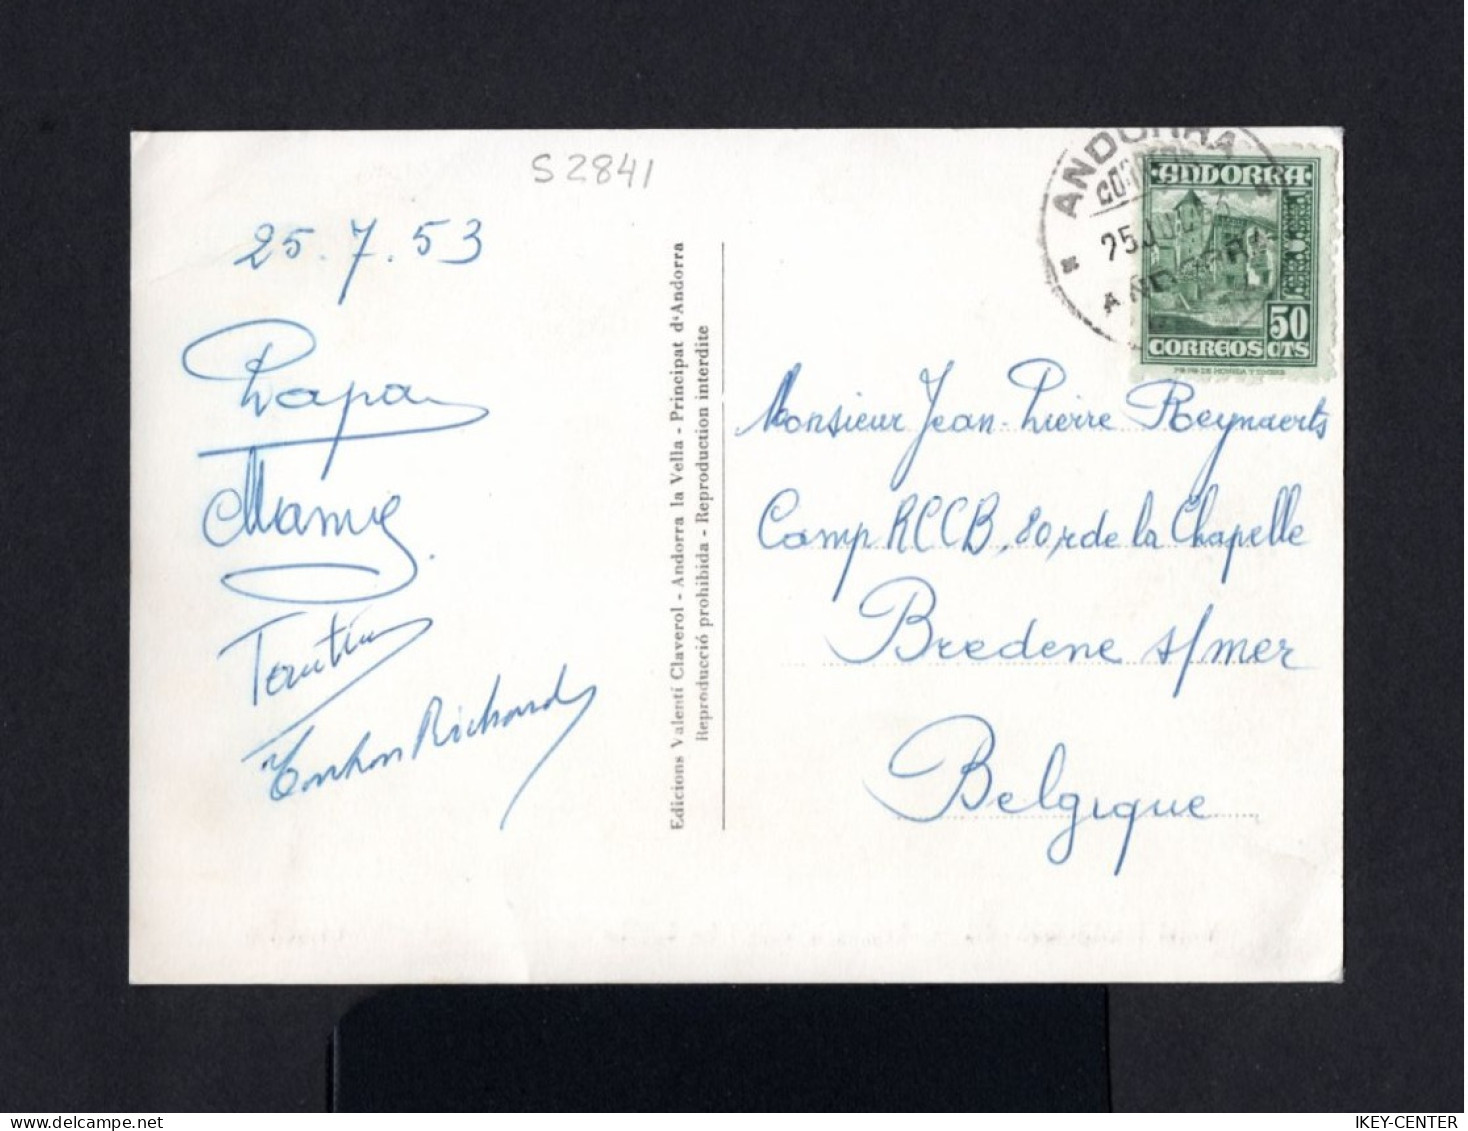 S 2841
25.7.53
Papa
Mamie
Tantine
Tonton Richard
Edicions Valentí Claverol - Andorra la Vella - Principat d'Andorra
Reproducció prohibida - Reproduction interdite
ANDORRA
CORREOS
25 JUL 53
ANDORRA
ANDORRA
50
CORREOS CTS
Monsieur Jean-Pierre Reynaerts
Camp RCCB, 80, r de la Chapelle
Bredene s/mer
Belgique
IKEY-CENTER